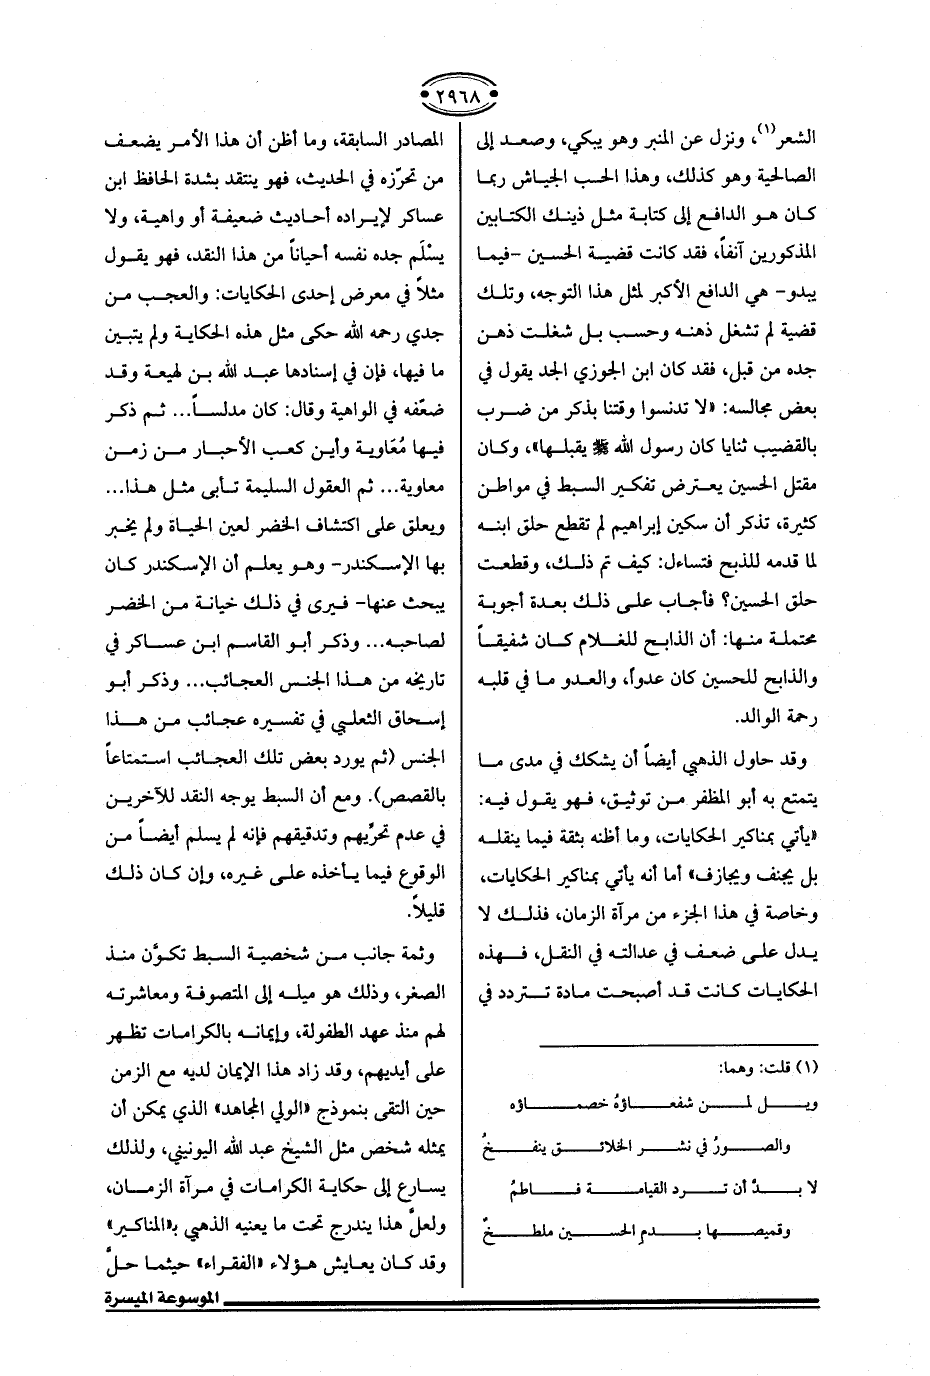 ٢٩٦٨
الشعر(١)، ونزل عن المنبر وهو يبكي، وصعد إلى
الصالحية وهو كذلك، وهذا الحب الجياش ربما
كان هو الدافع إلى كتابة مثل ذينك الكتابين
المذكورين آنفاً، فقد كانت قضية الحسين -فيما
يبدو- هي الدافع الأكبر لمثل هذا التوجه، وتلك
قضية لم تشغل ذهنه وحسب بل شغلت ذهن
جده من قبل، فقد كان ابن الجوزي الجد يقول في
بعض مجالسه: «لا تدنسوا وقتنا بذكر من ضرب
بالقضيب ثنايا كان رسول الله ﷺ يقبلها»، وكان
مقتل الحسين يعترض تفكير السبط في مواطن
كثيرة، تذكر أن سكين إبراهيم لم تقطع حلق ابنه
لما قدمه للذبح فتساءل: كيف تم ذلك، وقطعت
حلق الحسين؟ فأجاب على ذلك بعدة أجوبة
محتملة منها: أن الذابح للغلام كان شفيقاً
والذابح للحسين كان عدواً، والعدو ما في قلبه
رحمة الوالد.
وقد حاول الذهبي أيضاً أن يشكك في مدى ما
يتمتع به أبو المظفر من توثيق، فهو يقول فيه:
«يأتي بمناكير الحكايات، وما أظنه بثقة فيما ينقله
بل يجنف ويجازف» أما أنه يأتي بمناكير الحكايات،
وخاصة في هذا الجزء من مرآة الزمان، فذلك لا
يدل على ضعف في عدالته في النقل، فهذه
الحكايات كانت قد أصبحت مادة تتردد في
(١) قلت: وهما:
ويل لمن شفعاؤهُ خصماؤه
والصورُ في نشر الخلائق ينفخُ
لا بدَّ أن ترد القيامة فاطمُ
وقميصها بدم الحسين ملطخُ
المصادر السابقة، وما أظن أن هذا الأمر يضعف
من تحرّزه في الحديث، فهو ينتقد بشدة الحافظ ابن
عساكر لإيراده أحاديث ضعيفة أو واهية، ولا
يسْلَم جده نفسه أحياناً من هذا النقد، فهو يقول
مثلاً في معرض إحدى الحكايات: والعجب من
جدي رحمه الله حكى مثل هذه الحكاية ولم يتبين
ما فيها، فإن في إسنادها عبد الله بن لهيعة وقد
ضعّفه في الواهية وقال: كان مدلساً... ثم ذكر
فيها مُعَاوية وأين كعب الأحبار من زمن
معاوية... ثم العقول السليمة تأبى مثل هذا...
ويعلق على اكتشاف الخضر لعين الحياة ولم يخبر
بها الإسكندر- وهو يعلم أن الإسكندر كان
يبحث عنها- فيرى في ذلك خيانة من الخضر
لصاحبه... وذكر أبو القاسم ابن عساكر في
تاريخه من هذا الجنس العجائب... وذكر أبو
إسحاق الثعلبي في تفسيره عجائب من هذا
الجنس (ثم يورد بعض تلك العجائب استمتاعاً
بالقصص). ومع أن السبط يوجه النقد للآخرين
في عدم تحرِّيهم وتدقيقهم فإنه لم يسلم أيضاً من
الوقوع فيما يأخذه على غيره، وإن كان ذلك
قليلاً.
وثمة جانب من شخصية السبط تكوَّن منذ
الصغر، وذلك هو ميله إلى المتصوفة ومعاشرته
لهم منذ عهد الطفولة، وإيمانه بالكرامات تظهر
على أيديهم، وقد زاد هذا الإيمان لديه مع الزمن
حين التقى بنموذج «الولي المجاهد» الذي يمكن أن
يمثله شخص مثل الشيخ عبد الله اليونيني، ولذلك
يسارع إلى حكاية الكرامات في مرآة الزمان،
ولعلَّ هذا يندرج تحت ما يعنيه الذهبي بـ«المناكير»
وقد كان يعايش هؤلاء «الفقراء» حيثما حلَّ
الموسوعة الميسرة